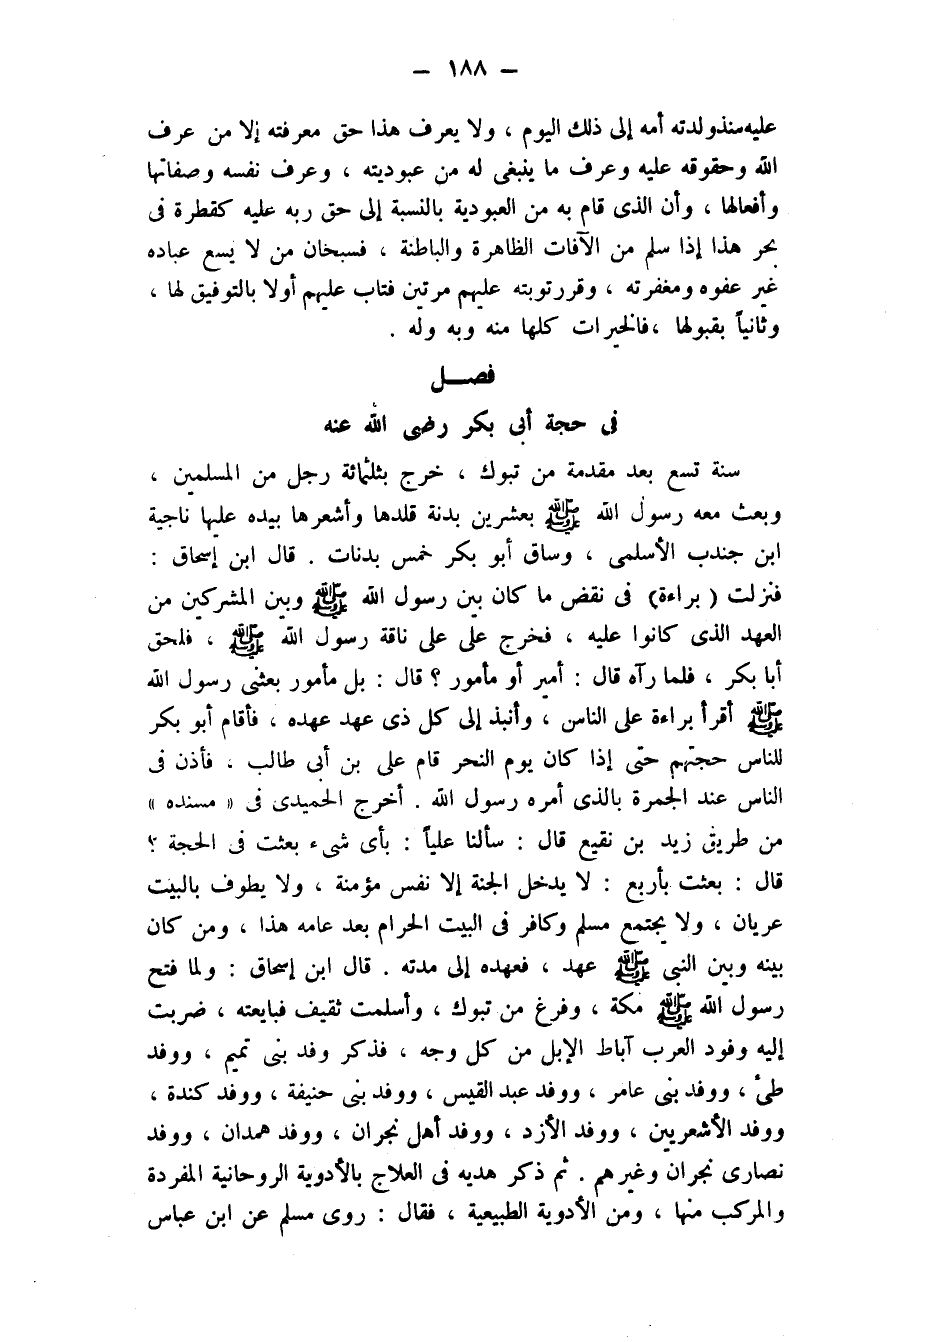 — ١٨٨ —
عليه منذ ولدته أمه إلى ذلك اليوم ، ولا يعرف هذا حق معرفته إلا من عرف
الله وحقوقه عليه وعرف ما ينبغى له من عبوديته ، وعرف نفسه وصفاتها
وأفعالها ، وأن الذى قام به من العبودية بالنسبة إلى حق ربه عليه كقطرة فى
بحر هذا إذا سلم من الآفات الظاهرة والباطنة ، فسبحان من لا يسع عباده
غير عفوه ومغفرته ، وقرر توبته عليهم مرتين فتاب عليهم أولا بالتوفيق لها ،
وثانياً بقبولها ، فالخيرات كلها منه وبه وله .
فصــل
فى حجة أبى بكر رضى الله عنه
سنة تسع بعد مقدمة من تبوك ، خرج بثلثمائة رجل من المسلمين ،
وبعث معه رسول الله ﷺ بعشرين بدنة قلدها وأشعرها بيده عليها ناجية
ابن جندب الأسلمى ، وساق أبو بكر خمس بدنات . قال ابن إسحاق :
فنزلت ( براءة ) فى نقض ما كان بين رسول الله ﷺ وبين المشركين من
العهد الذى كانوا عليه ، فخرج على على ناقة رسول الله ﷺ ، فلحق
أبا بكر ، فلما رآه قال : أمير أو مأمور ؟ قال : بل مأمور بعثنى رسول الله
ﷺ أقرأ براءة على الناس ، وأنبذ إلى كل ذى عهد عهده ، فأقام أبو بكر
للناس حجتهم حتى إذا كان يوم النحر قام على بن أبى طالب ، فأذن فى
الناس عند الجمرة بالذى أمره رسول الله . أخرج الحميدى فى « مسنده »
من طريق زيد بن نقيع قال : سألنا علياً : بأى شىء بعثت فى الحجة ؟
قال : بعثت بأربع : لا يدخل الجنة إلا نفس مؤمنة ، ولا يطوف بالبيت
عريان ، ولا يجتمع مسلم وكافر فى البيت الحرام بعد عامه هذا ، ومن كان
بينه وبين النبى ﷺ عهد ، فعهده إلى مدته . قال ابن إسحاق : ولما فتح
رسول الله ﷺ مكة ، وفرغ من تبوك ، وأسلمت ثقيف فبايعته ، ضربت
إليه وفود العرب آباط الإبل من كل وجه ، فذكر وفد بنى تميم ، ووفد
طئ ، ووفد بنى عامر ، ووفد عبد القيس ، ووفد بنى حنيفة ، ووفد كندة ،
ووفد الأشعريين ، ووفد الأزد ، ووفد أهل نجران ، ووفد همدان ، ووفد
نصارى نجران وغيرهم . ثم ذكر هديه فى العلاج بالأدوية الروحانية المفردة
والمركب منها ، ومن الأدوية الطبيعية ، فقال : روى مسلم عن ابن عباس